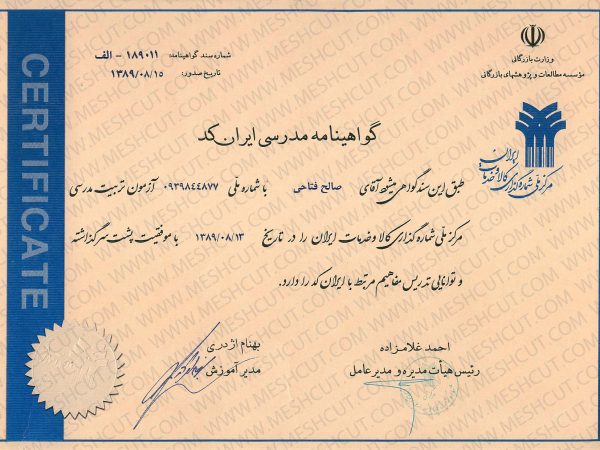 وزارت بازرگانی
مؤسسه مطالعات و پژوهشهای بازرگانی
شماره سند گواهینامه: ۱۸۹۰۱۱ - الف
تاریخ صدور: ۱۳۸۹/۰۸/۱۵
ایران
مرکز ملی شماره گذاری کالا و خدمات
CERTIFICATE
گواهینامه مدرسی ایران کد
طبق این سند گواهی میشود آقای صالح فتاحی با شماره ملّی ۰۹۳۹۸۴۴۸۷۷ آزمون تربیت مدرسی
مرکز ملّی شماره گذاری کالا و خدمات ایران را در تاریخ ۱۳۸۹/۰۸/۱۳ با موفقیت پشت سر گذاشته
و توانایی تدریس مفاهیم مرتبط با ایران کد را دارد.
احمد غلامزاده
رئیس هیأت مدیره و مدیر عامل
بهنام اژدری
مدیر آموزش
WWW.MESHCUT.COM